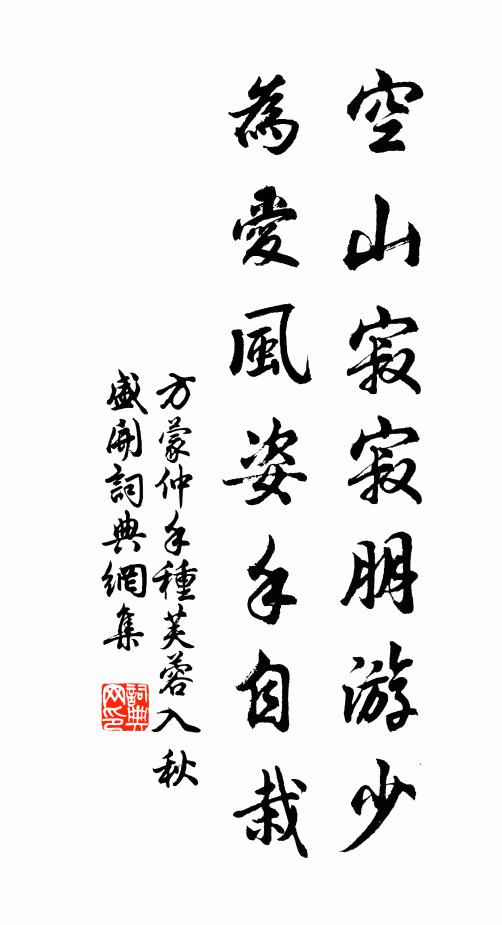 空山寂寂朋游少
為愛風姿手自栽
方蒙仲手種芙蓉入秋
盛開詞典網集
詞典网印